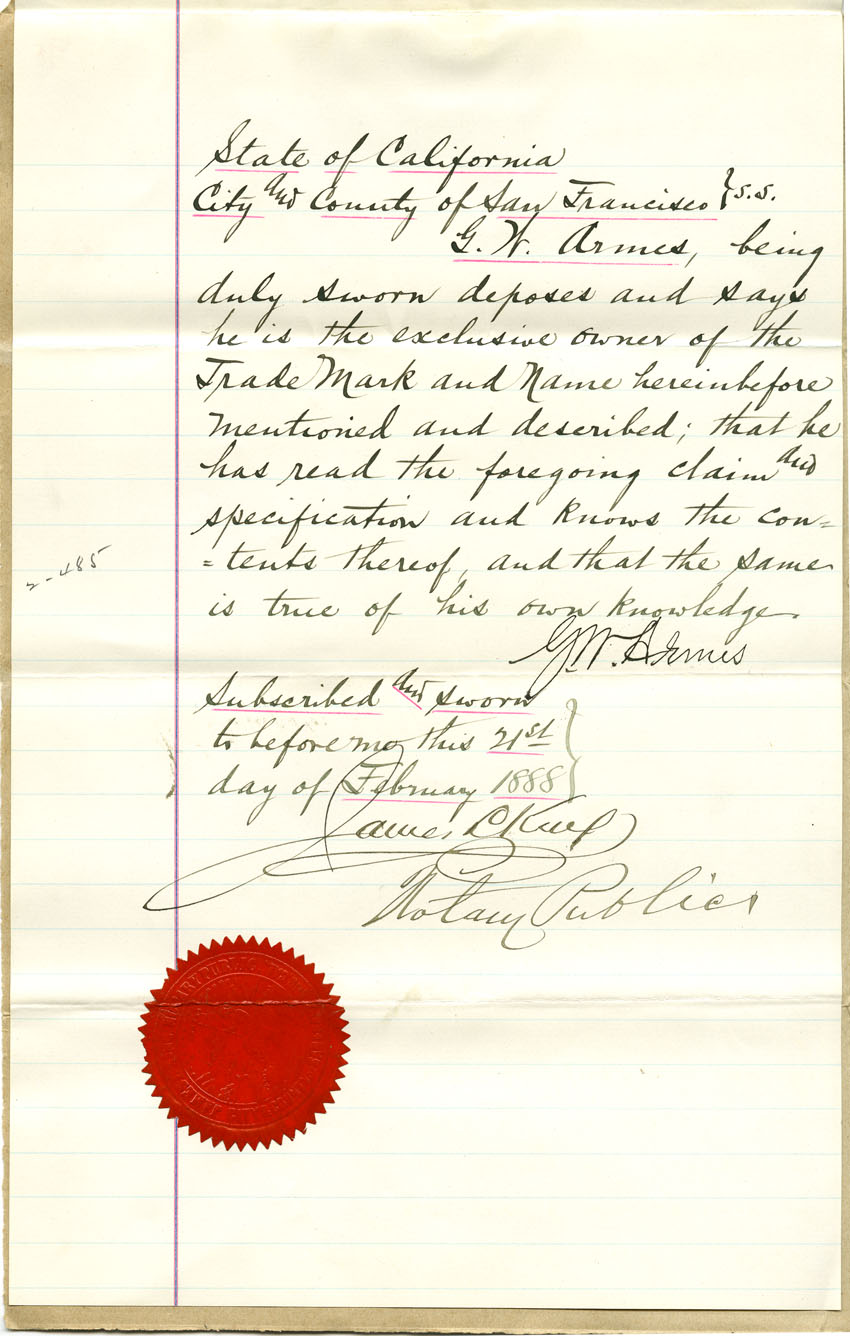 State of California
City and County of San Francisco } s.s.
G. W. Armes, being
duly sworn deposes and says
he is the exclusive owner of the
Trade Mark and Name hereinbefore
mentioned and described; that he
has read the foregoing claim and
specification and knows the con=
=tents thereof, and that the same
is true of his own knowledge.
G. W. Armes
Subscribed and sworn
to before me this 21st
day of February 1888
James L King
Notary Public
2-485
NOTARY PUBLIC